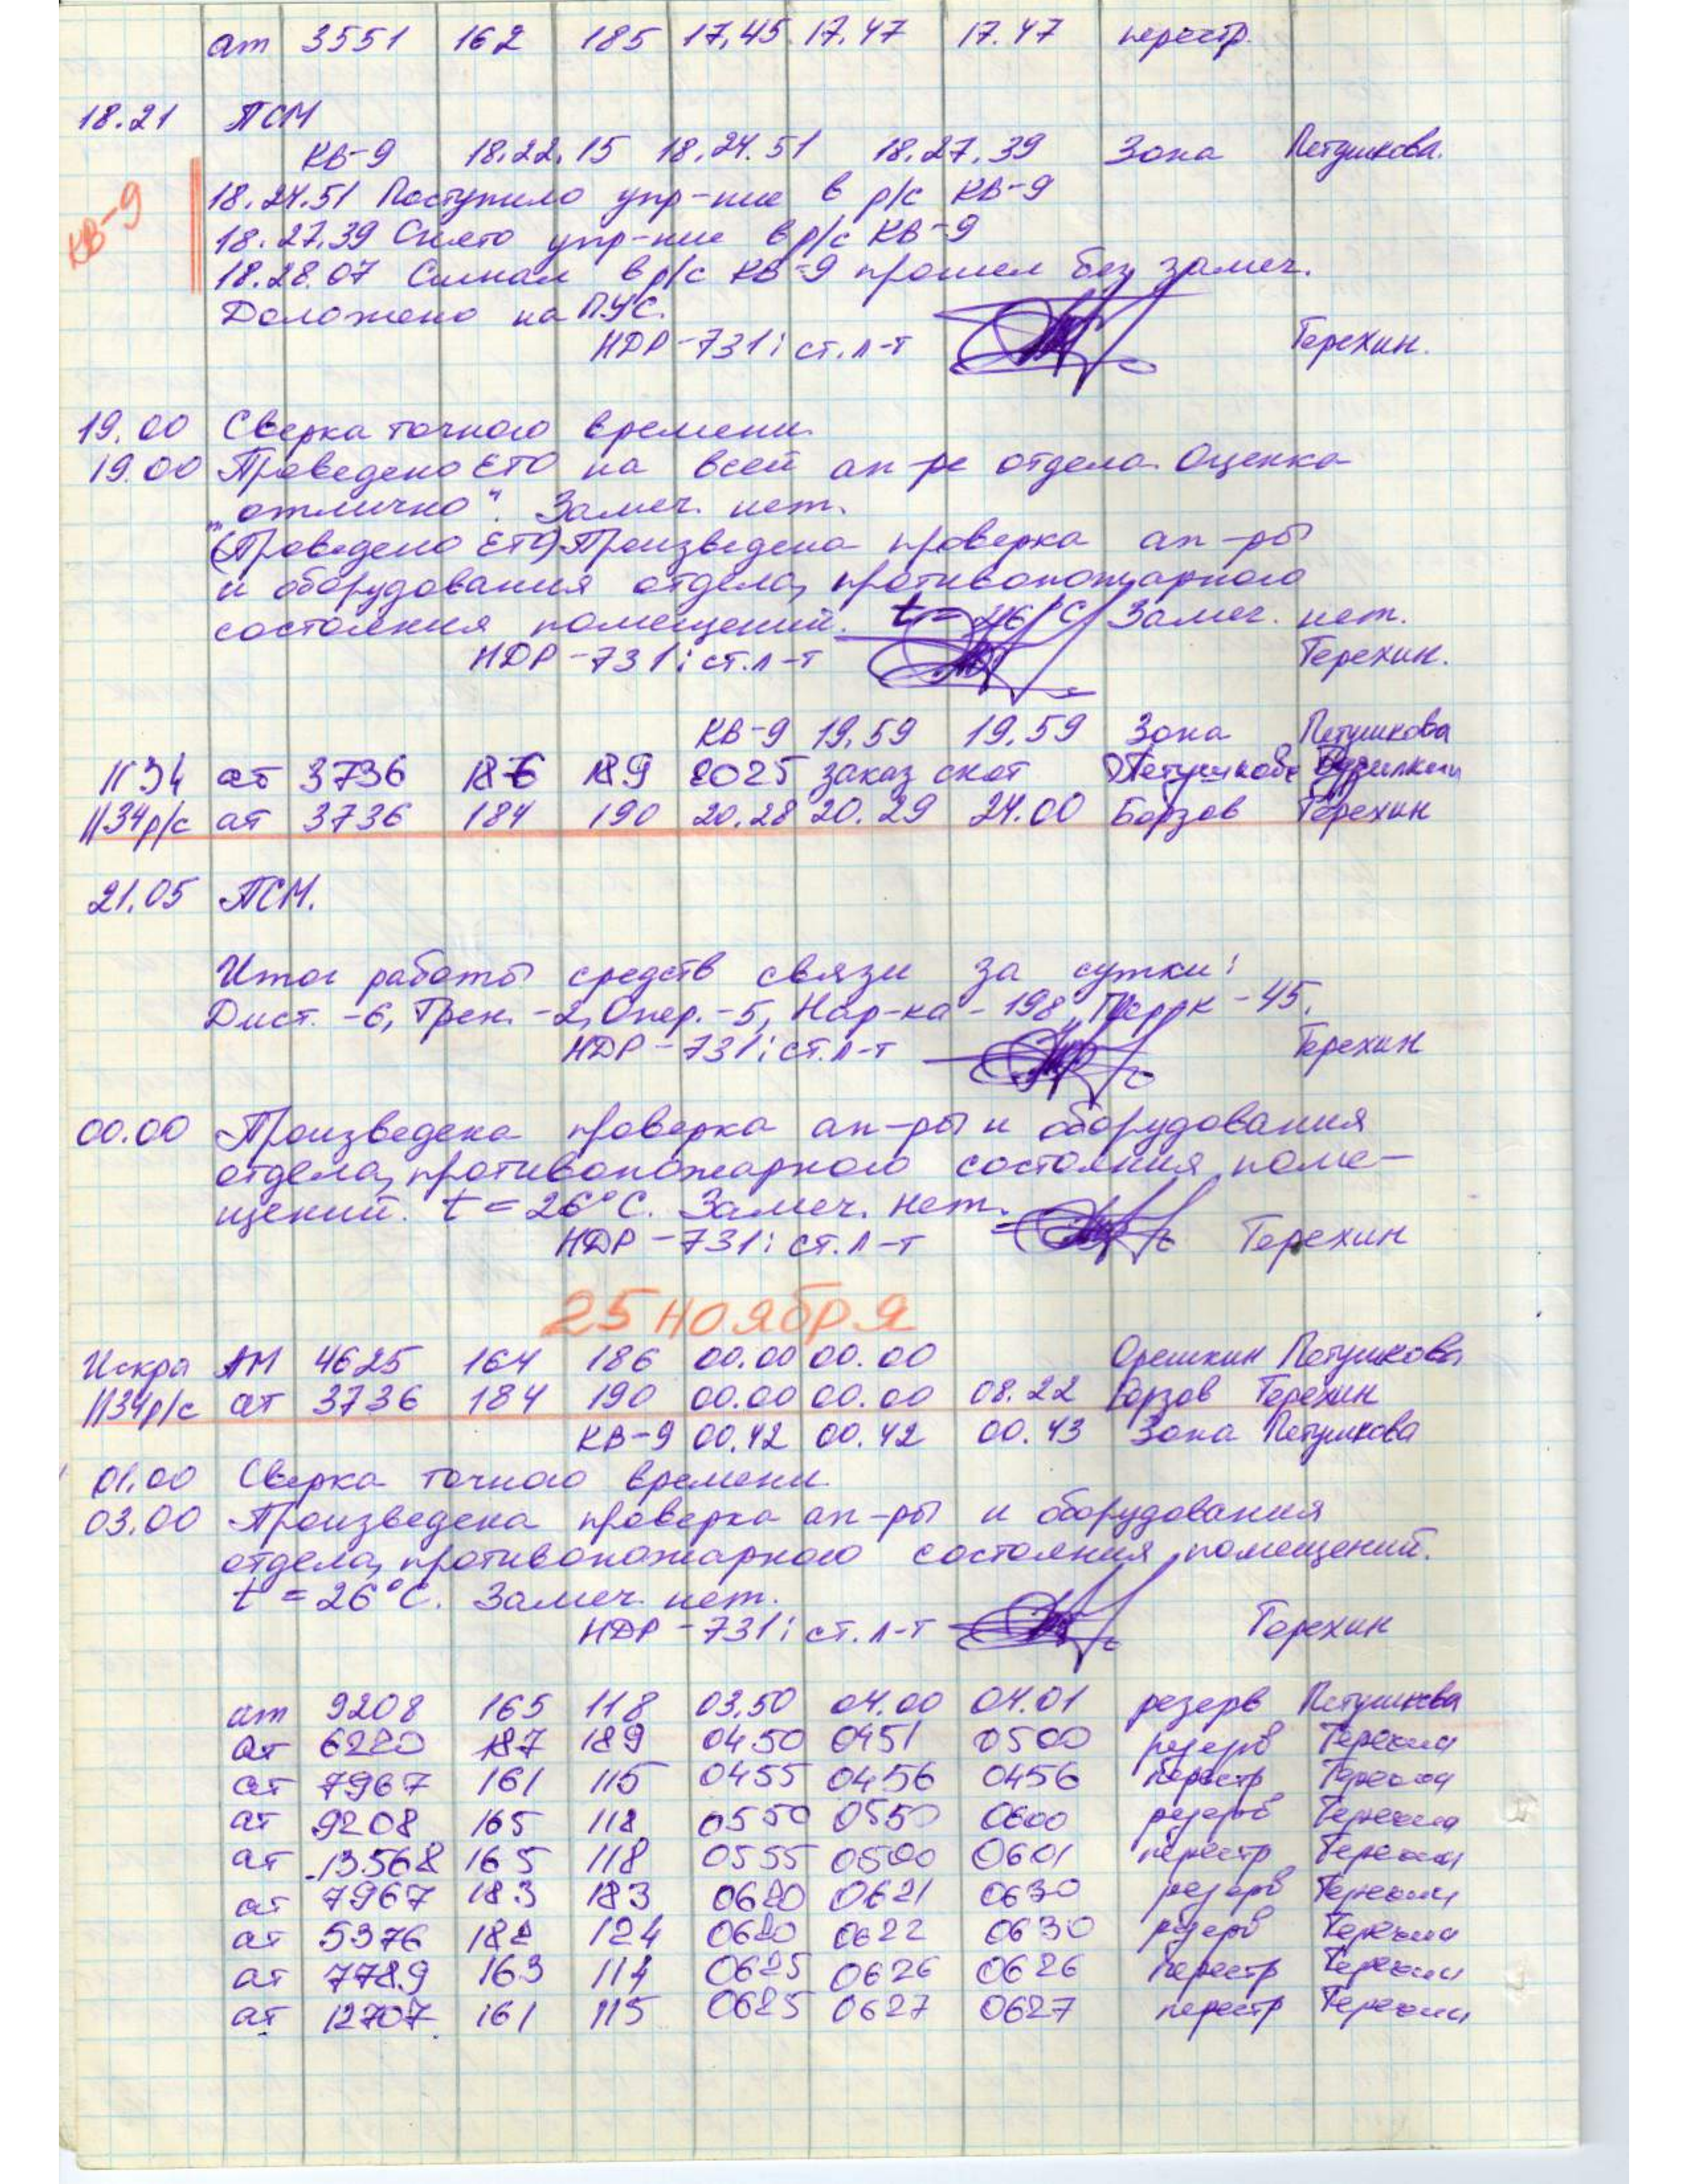 ат 3551 162 185 17.45 17.47 17.47 перестр.
18.21 ПСМ
КВ-9 18.22.15 18.24.51 18.27.39 Зона Петушкова.
КВ-9
18.24.51 Поступило упр-ние в р/с КВ-9
18.27.39 Снято упр-ние в р/с КВ-9
18.28.07 Сигнал в р/с КВ-9 прошел без замеч.
Доложено на ПУС.
НДР-731: ст. л-т Терехин.
19.00 Сверка точного времени.
19.00 Проведено ЕТО на всей ап-ре отдела. Оценка
„отлично". Замеч. нет.
(Проведено ЕТО) Произведена проверка ап-ры
и оборудования отдела, противопожарного
состояния помещений. t = 26°С Замеч. нет.
НДР-731: ст. л-т Терехин.
КВ-9 19.59 19.59 Зона Петушкова
1134 ат 3736 186 189 2025 заказ снят Петушкова
1134 р/с ат 3736 184 190 20.28 20.29 24.00 Борзов Терехин
21.05 ПСМ.
Итог работы средств связи за сутки:
Дист. -6, Трен. -2, Опер. -5, Нар-ка - 198, - 45.
НДР-731: ст. л-т Терехин
00.00 Произведена проверка ап-ры и оборудования
отдела, противопожарного состояния поме-
щений. t = 26°С. Замеч. нет.
НДР-731: ст. л-т Терехин
25 ноября
Искра АМ 4625 164 186 00.00 00.00 Орешкин Петушкова
1134 р/с ат 3736 184 190 00.00 00.00 08.22 Борзов Терехин
КВ-9 00.42 00.42 00.43 Зона Петушкова
01.00 Сверка точного времени
03.00 Произведена проверка ап-ры и оборудования
отдела, противопожарного состояния помещений.
t = 26°С. Замеч. нет.
НДР-731: ст. л-т Терехин
ат 9208 165 118 03.50 04.00 04.01 резерв Петушкова
ат 6220 187 189 0450 0451 0500 резерв Терехин
ат 7967 161 115 0455 0456 0456 перестр Терехин
ат 9208 165 118 0550 0550 0600 резерв Терехин
ат 13568 165 118 0555 0500 0601 перестр Терехин
ат 7967 183 183 0620 0621 0630 резерв Терехин
ат 5376 182 124 0620 0622 0630 резерв Терехин
ат 7789 163 114 0625 0626 0626 перестр Терехин
ат 12707 161 115 0625 0627 0627 перестр Терехин